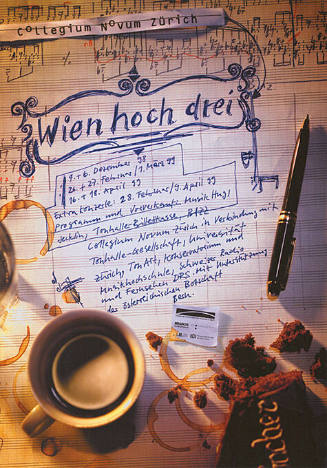 COLLEGIUM NOVUM ZÜRICH
Wien hoch drei
7. + 8. Dezember 98
26. + 27. Februar / 1. März 99
16. + 18. April 99
Extrakonzerte: 28. Februar / 9. April 99
Programm und Vorverkauf: Musik Hug /
Jecklin, Tonhalle, Billettkasse, BIZZ
Collegium Novum Zürich in Verbindung mit
Tonhalle-Gesellschaft, Universität
Zürich, TonArt, Konservatorium und
Musikhochschule, Schweizer Radio
und Fernsehen DRS. Mit Unterstützung
der österreichischen Botschaft
Bern.